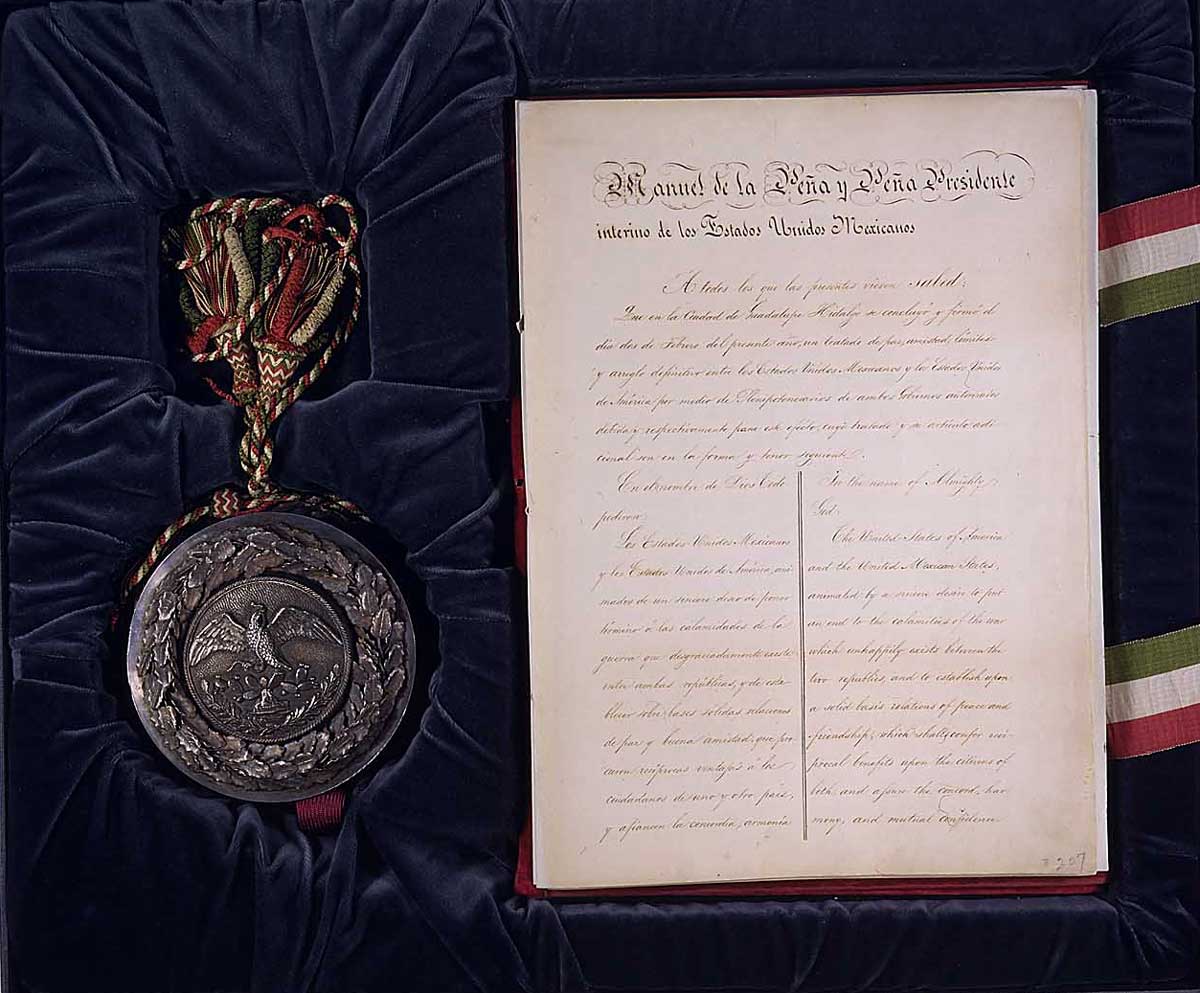 Manuel de la Peña y Peña Presidente
interino de los Estados Unidos Mexicanos
A todos los que las presentes vieren salud:
Que en la Ciudad de Guadalupe Hidalgo se concluyó y firmó el
dia dos de Febrero del presente año, un tratado de paz, amistad, limites
y arreglo definitivo entre los Estados Unidos Mexicanos y los Estados Unidos
de América por medio de Plenipotenciarios de ambos Gobiernos autorizados
debida y respectivamente para este efecto, cuyo tratado y su articulo adi
cional son en la forma y tenor siguiente.
En el nombre de Dios Todo
poderoso:
Los Estados Unidos Mexicanos
y los Estados Unidos de América, ani
mados de un sincero deseo de poner
término á las calamidades de la
guerra que desgraciadamente existe
entre ambas repúblicas, y de esta
blecer sobre bases solidas relaciones
de paz y buena amistad, que pro
curen reciprocas ventajas á los
ciudadanos de uno y otro pais,
y afiancen la concordia, armonia
In the name of Almighty
God:
The United States of America
and the United Mexican States,
animated by a sincere desire to put
an end to the calamities of the war
which unhappily exists between the
two republics, and to establish upon
a solid basis relations of peace and
friendship, which shall confer reci-
procal benefits upon the citizens of
both and assure the concord, har
mony, and mutual confidence
207